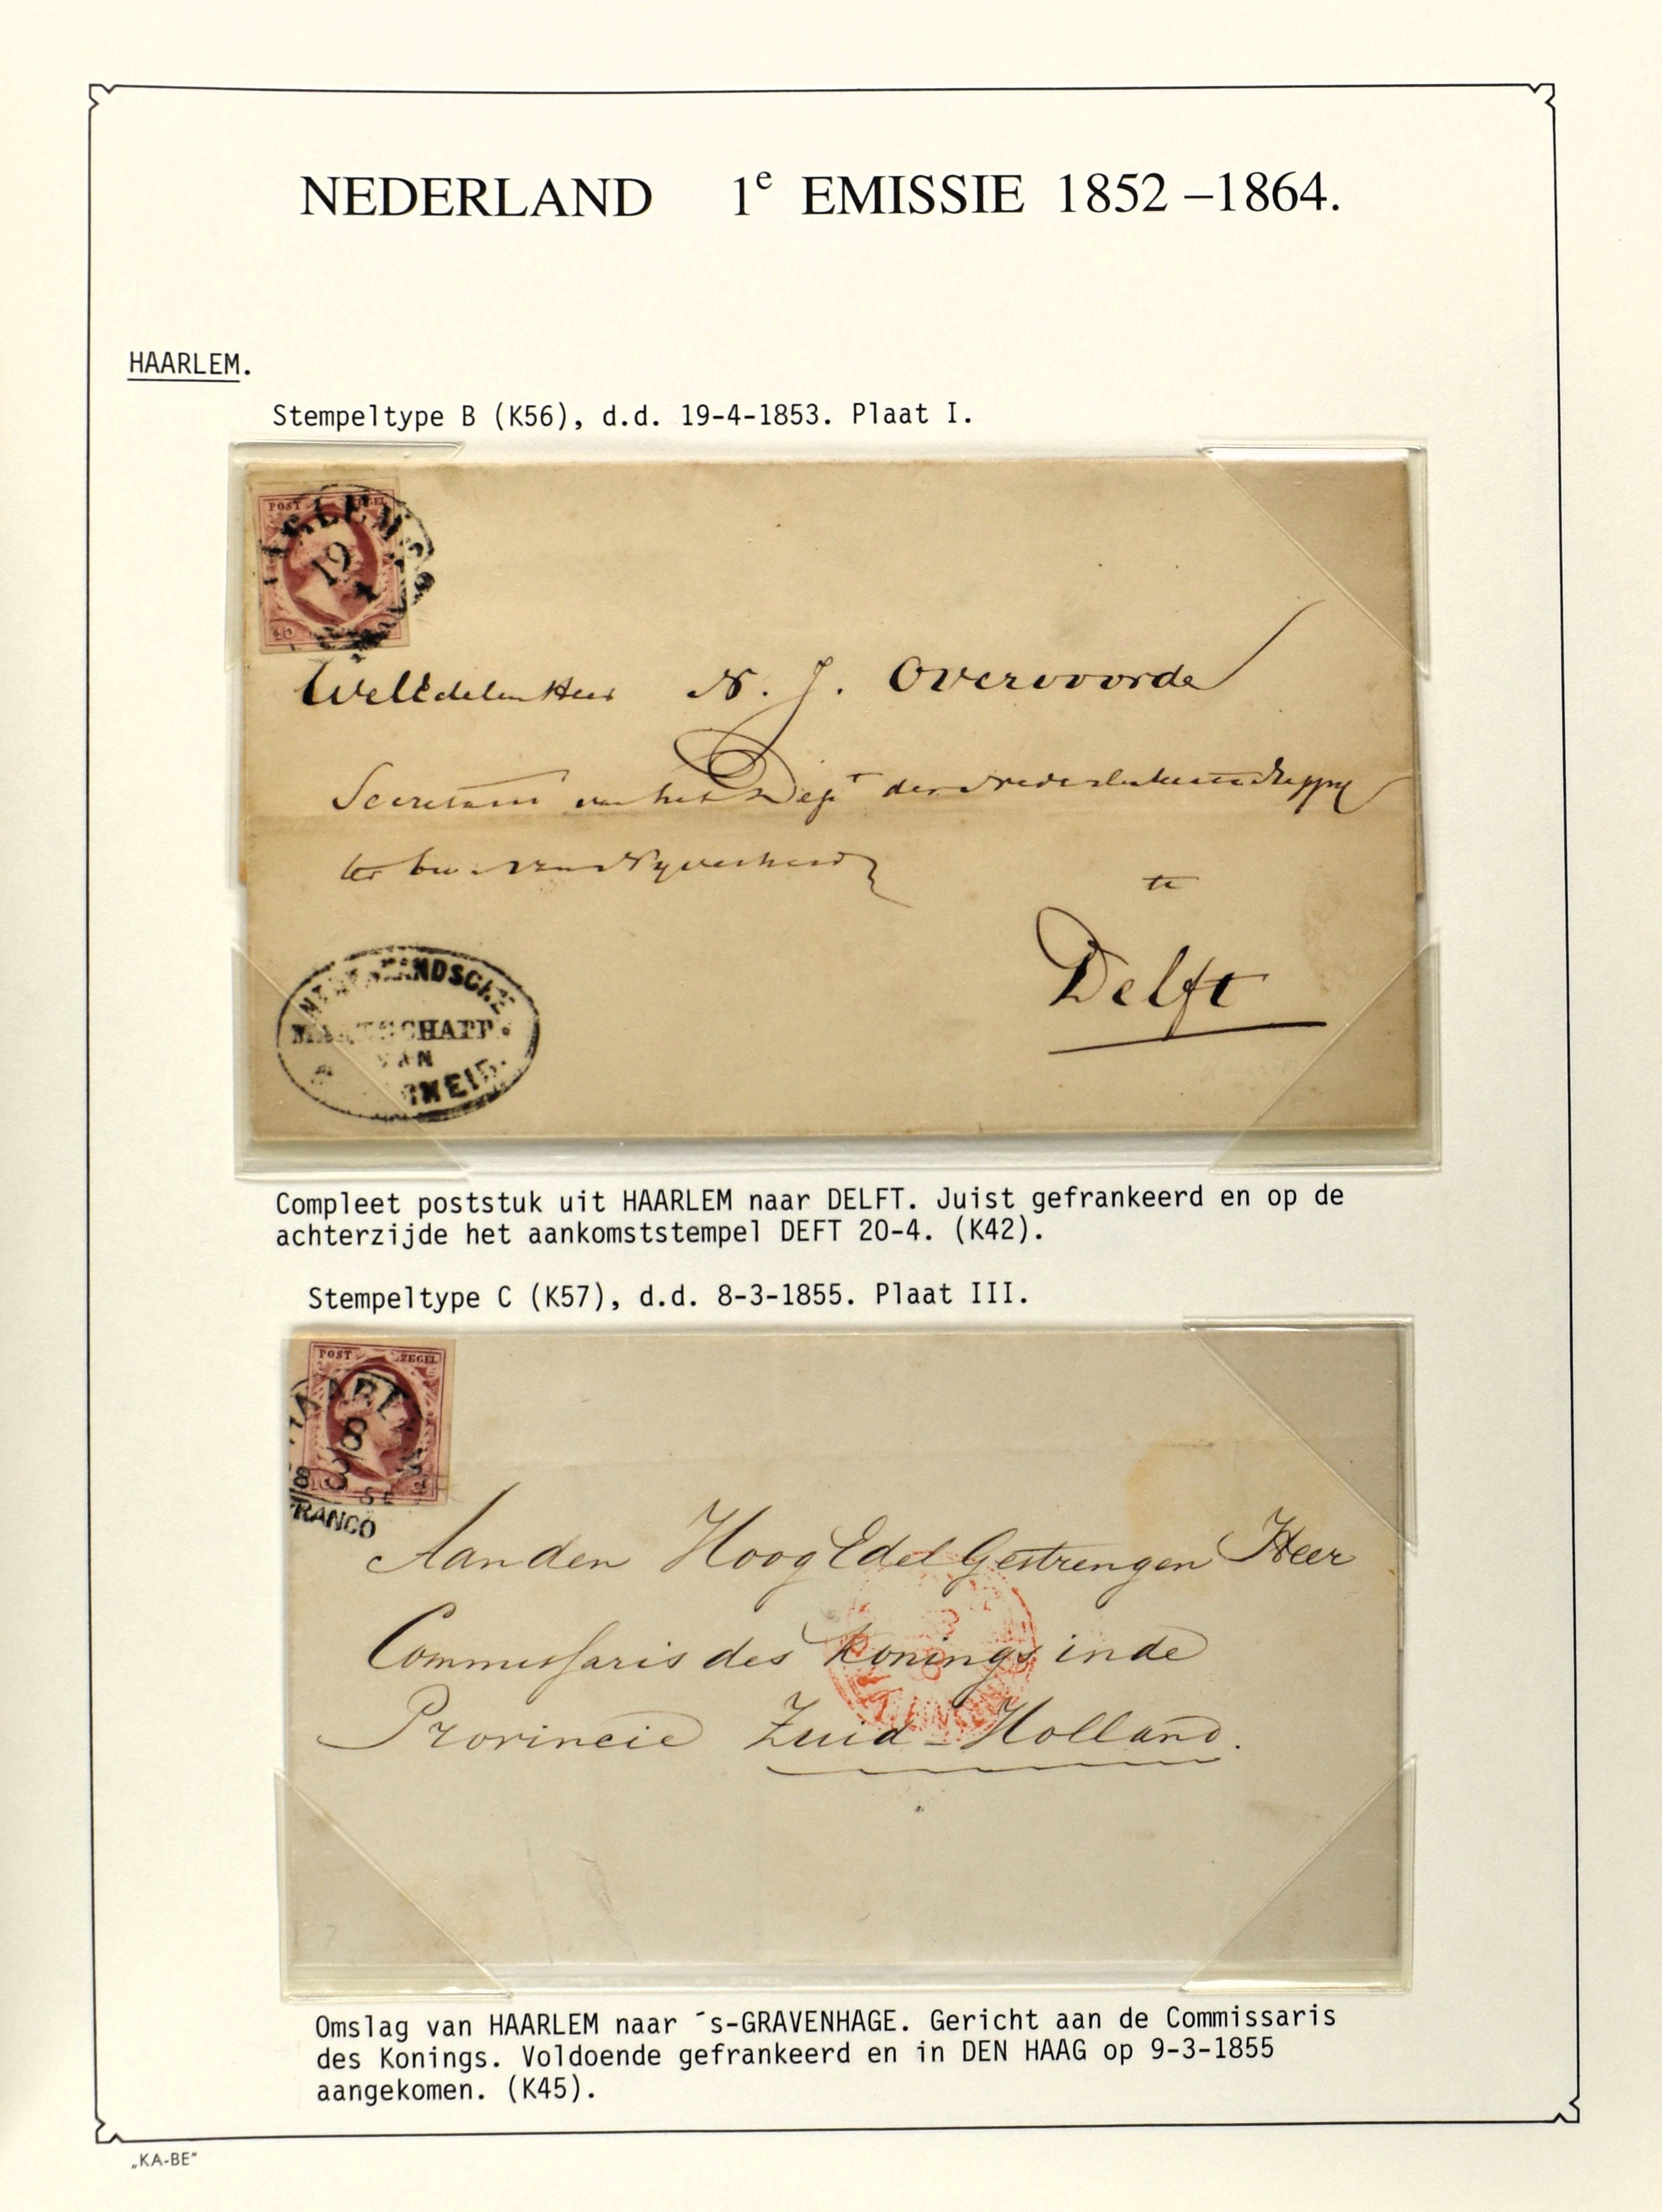 NEDERLAND 1e EMISSIE 1852 –1864.
HAARLEM.
Stempeltype B (K56), d.d. 19-4-1853. Plaat I.
POST
19
WelEdelen Heer N. J. Overvoorde
Secretaris van het Dept der Nederl Maatschappij
ter bev. van Nyverheid
te
Delft
NEDERLANDSCHE
MAATSCHAPP.
VAN
Compleet poststuk uit HAARLEM naar DELFT. Juist gefrankeerd en op de
achterzijde het aankomststempel DEFT 20-4. (K42).
Stempeltype C (K57), d.d. 8-3-1855. Plaat III.
POST ZEGEL
HAARLEM
8
3
FRANCO
Aan den Hoog Edel Gestrengen Heer
Commissaris des Konings in de
Provincie Zuid-Holland.
Omslag van HAARLEM naar ´s-GRAVENHAGE. Gericht aan de Commissaris
des Konings. Voldoende gefrankeerd en in DEN HAAG op 9-3-1855
aangekomen. (K45).
„KA-BE“